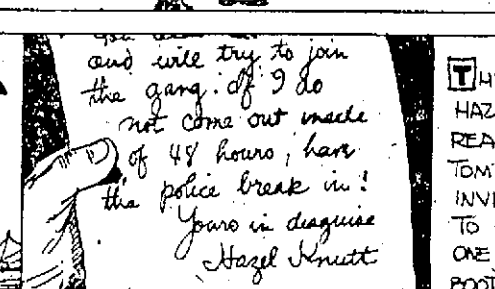 and will try to join
the gang. If I do
not come out inside
of 48 hours, have
the police break in!
Yours in disguise
Hazel Knutt
TH
HAZ
REA
TOM
INVI
TO
ONE
BOOT